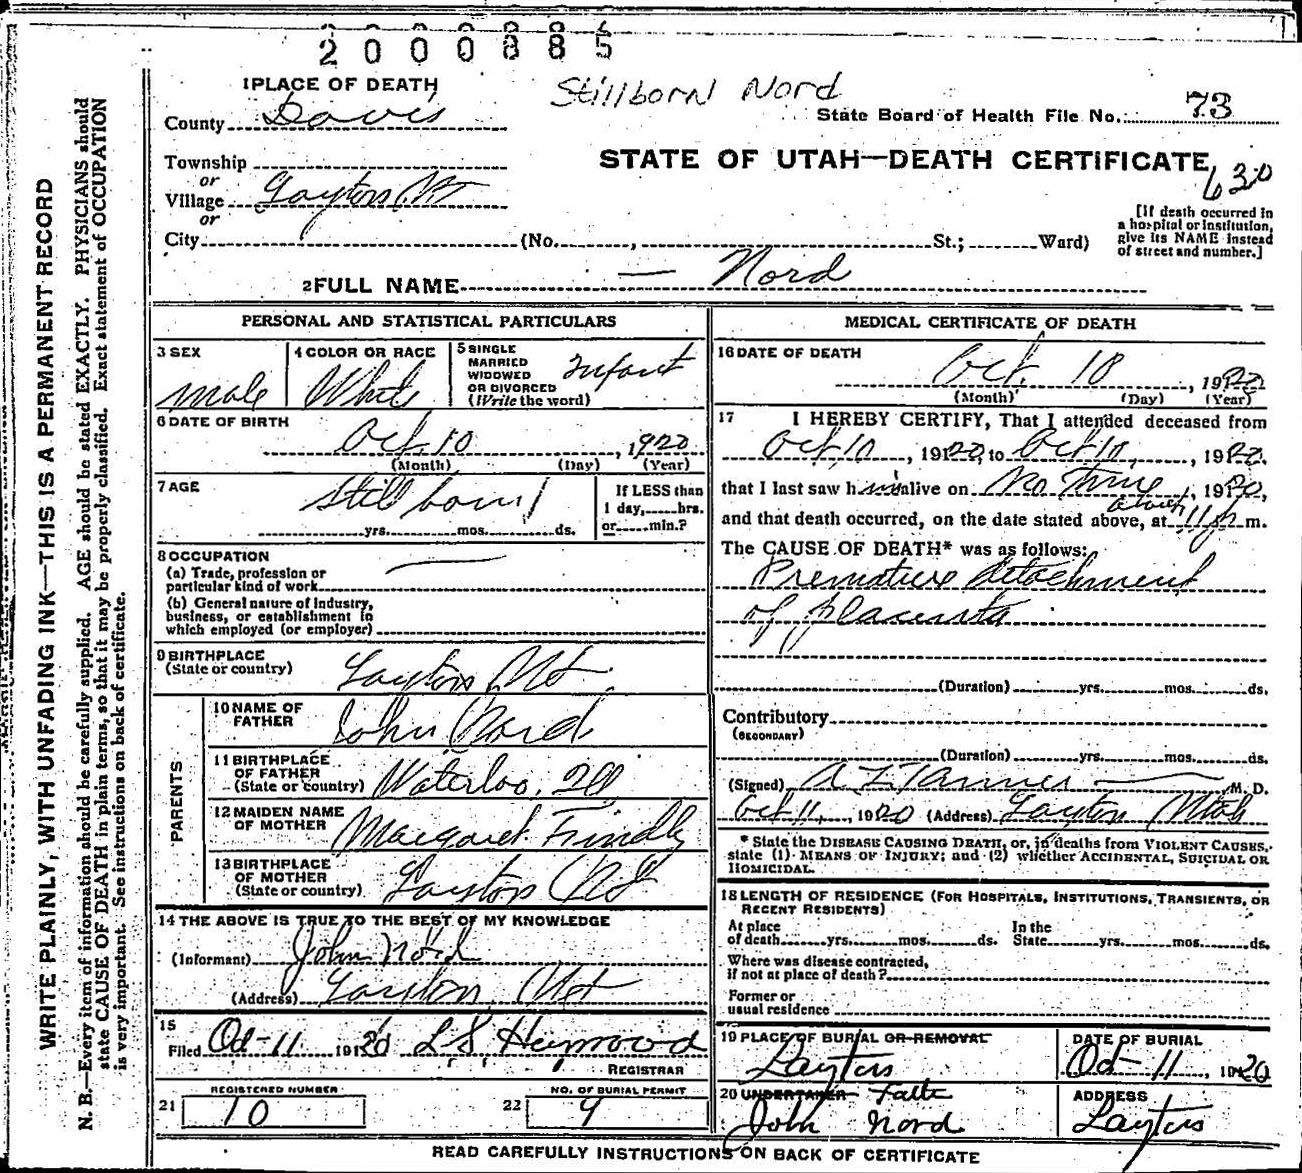 2000885
Stillborn Nord
1 PLACE OF DEATH
County Davis
State Board of Health File No. 73
STATE OF UTAH—DEATH CERTIFICATE
630
Township
or
Village Layton Ut
or
City (No. , St.; Ward)
[If death occurred in
a hospital or institution,
give its NAME instead
of street and number.]
2 FULL NAME — Nord
PERSONAL AND STATISTICAL PARTICULARS
3 SEX
male
4 COLOR OR RACE
White
5 SINGLE
MARRIED
WIDOWED
OR DIVORCED
(Write the word)
Infant
6 DATE OF BIRTH
Oct. 10, 1920
(Month) (Day) (Year)
7 AGE
Still born
yrs. mos. ds.
If LESS than
1 day, hrs.
or min.?
8 OCCUPATION
(a) Trade, profession or
particular kind of work
(b) General nature of industry,
business, or establishment in
which employed (or employer)
9 BIRTHPLACE
(State or country) Layton, Ut
PARENTS
10 NAME OF
FATHER John Nord
11 BIRTHPLACE
OF FATHER
(State or country) Waterloo, Ill
12 MAIDEN NAME
OF MOTHER Margaret
13 BIRTHPLACE
OF MOTHER
(State or country) Layton Ut
14 THE ABOVE IS TRUE TO THE BEST OF MY KNOWLEDGE
(Informant) John Nord
(Address) Layton, Ut
15
Filed Oct-11 1920 L. S. Heywood
REGISTRAR
REGISTERED NUMBER
21 10
NO. OF BURIAL PERMIT
22 9
MEDICAL CERTIFICATE OF DEATH
16 DATE OF DEATH
Oct. 10, 1920
(Month) (Day) (Year)
17 I HEREBY CERTIFY, That I attended deceased from
Oct 10, 1920, to Oct 10, 1920,
that I last saw h im alive on No Time, 1920,
and that death occurred, on the date stated above, at about 11 p m.
The CAUSE OF DEATH* was as follows:
Premature detachment
of placenta
(Duration) yrs. mos. ds.
Contributory
(SECONDARY)
(Duration) yrs. mos. ds.
(Signed) A Z Tanner M. D.
Oct 11, 1920 (Address) Layton Utah
* State the DISEASE CAUSING DEATH, or, in deaths from VIOLENT CAUSES,
state (1) MEANS OF INJURY; and (2) whether ACCIDENTAL, SUICIDAL OR
HOMICIDAL.
18 LENGTH OF RESIDENCE (FOR HOSPITALS, INSTITUTIONS, TRANSIENTS, OR
RECENT RESIDENTS)
At place
of death yrs. mos. ds.
In the
State yrs. mos. ds.
Where was disease contracted,
if not at place of death?
Former or
usual residence
19 PLACE OF BURIAL OR REMOVAL
Layton
DATE OF BURIAL
Oct-11, 1920
20 UNDERTAKER
John Nord
ADDRESS
Layton
READ CAREFULLY INSTRUCTIONS ON BACK OF CERTIFICATE
WRITE PLAINLY, WITH UNFADING INK—THIS IS A PERMANENT RECORD
N. B.—Every item of information should be carefully supplied. AGE should be stated EXACTLY. PHYSICIANS should
state CAUSE OF DEATH in plain terms, so that it may be properly classified. Exact statement of OCCUPATION
is very important. See instructions on back of certificate.